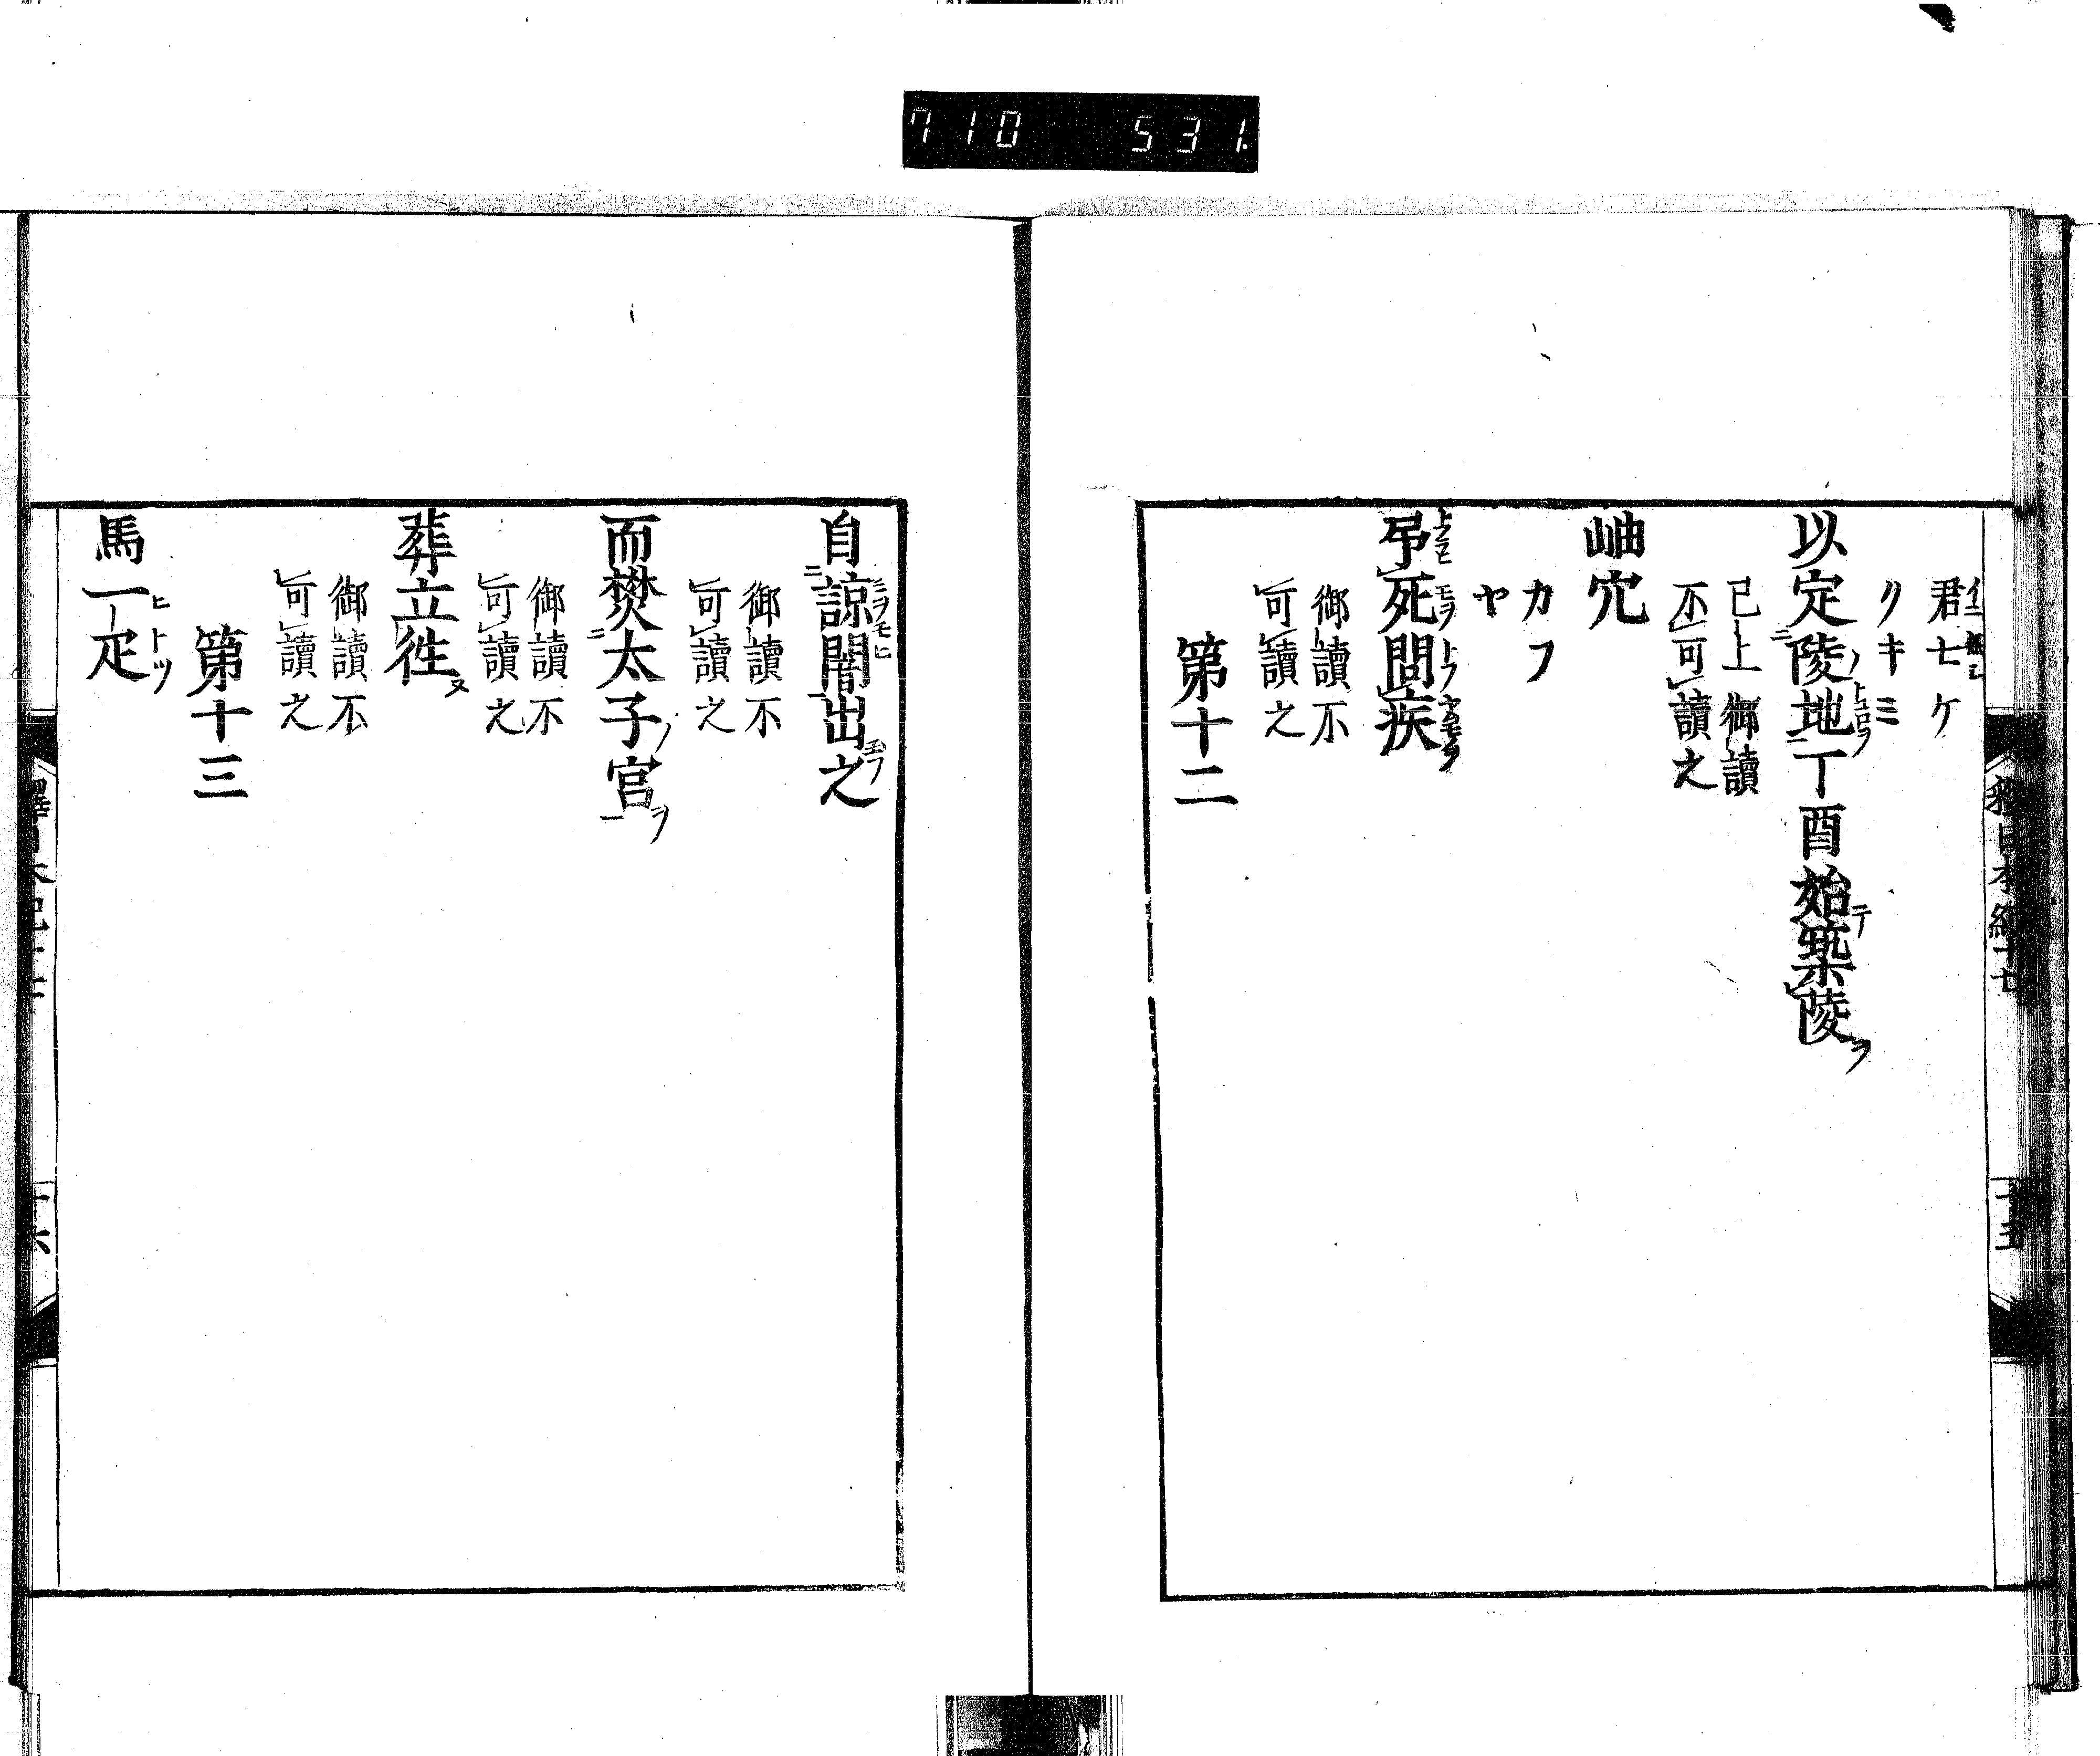 710 531.
君七ケ
リキミ
以定陵地丁酉始築陵
已上御讀
不可讀之
岫穴
カフ
ヤ
弔死問疾
御讀不
可讀之
第十二
自諒闇出之
御讀不
可讀之
而焚太子宮
御讀不
可讀之
葬立徃
御讀不
可讀之
第十三
馬一疋
ヒトツ
十六